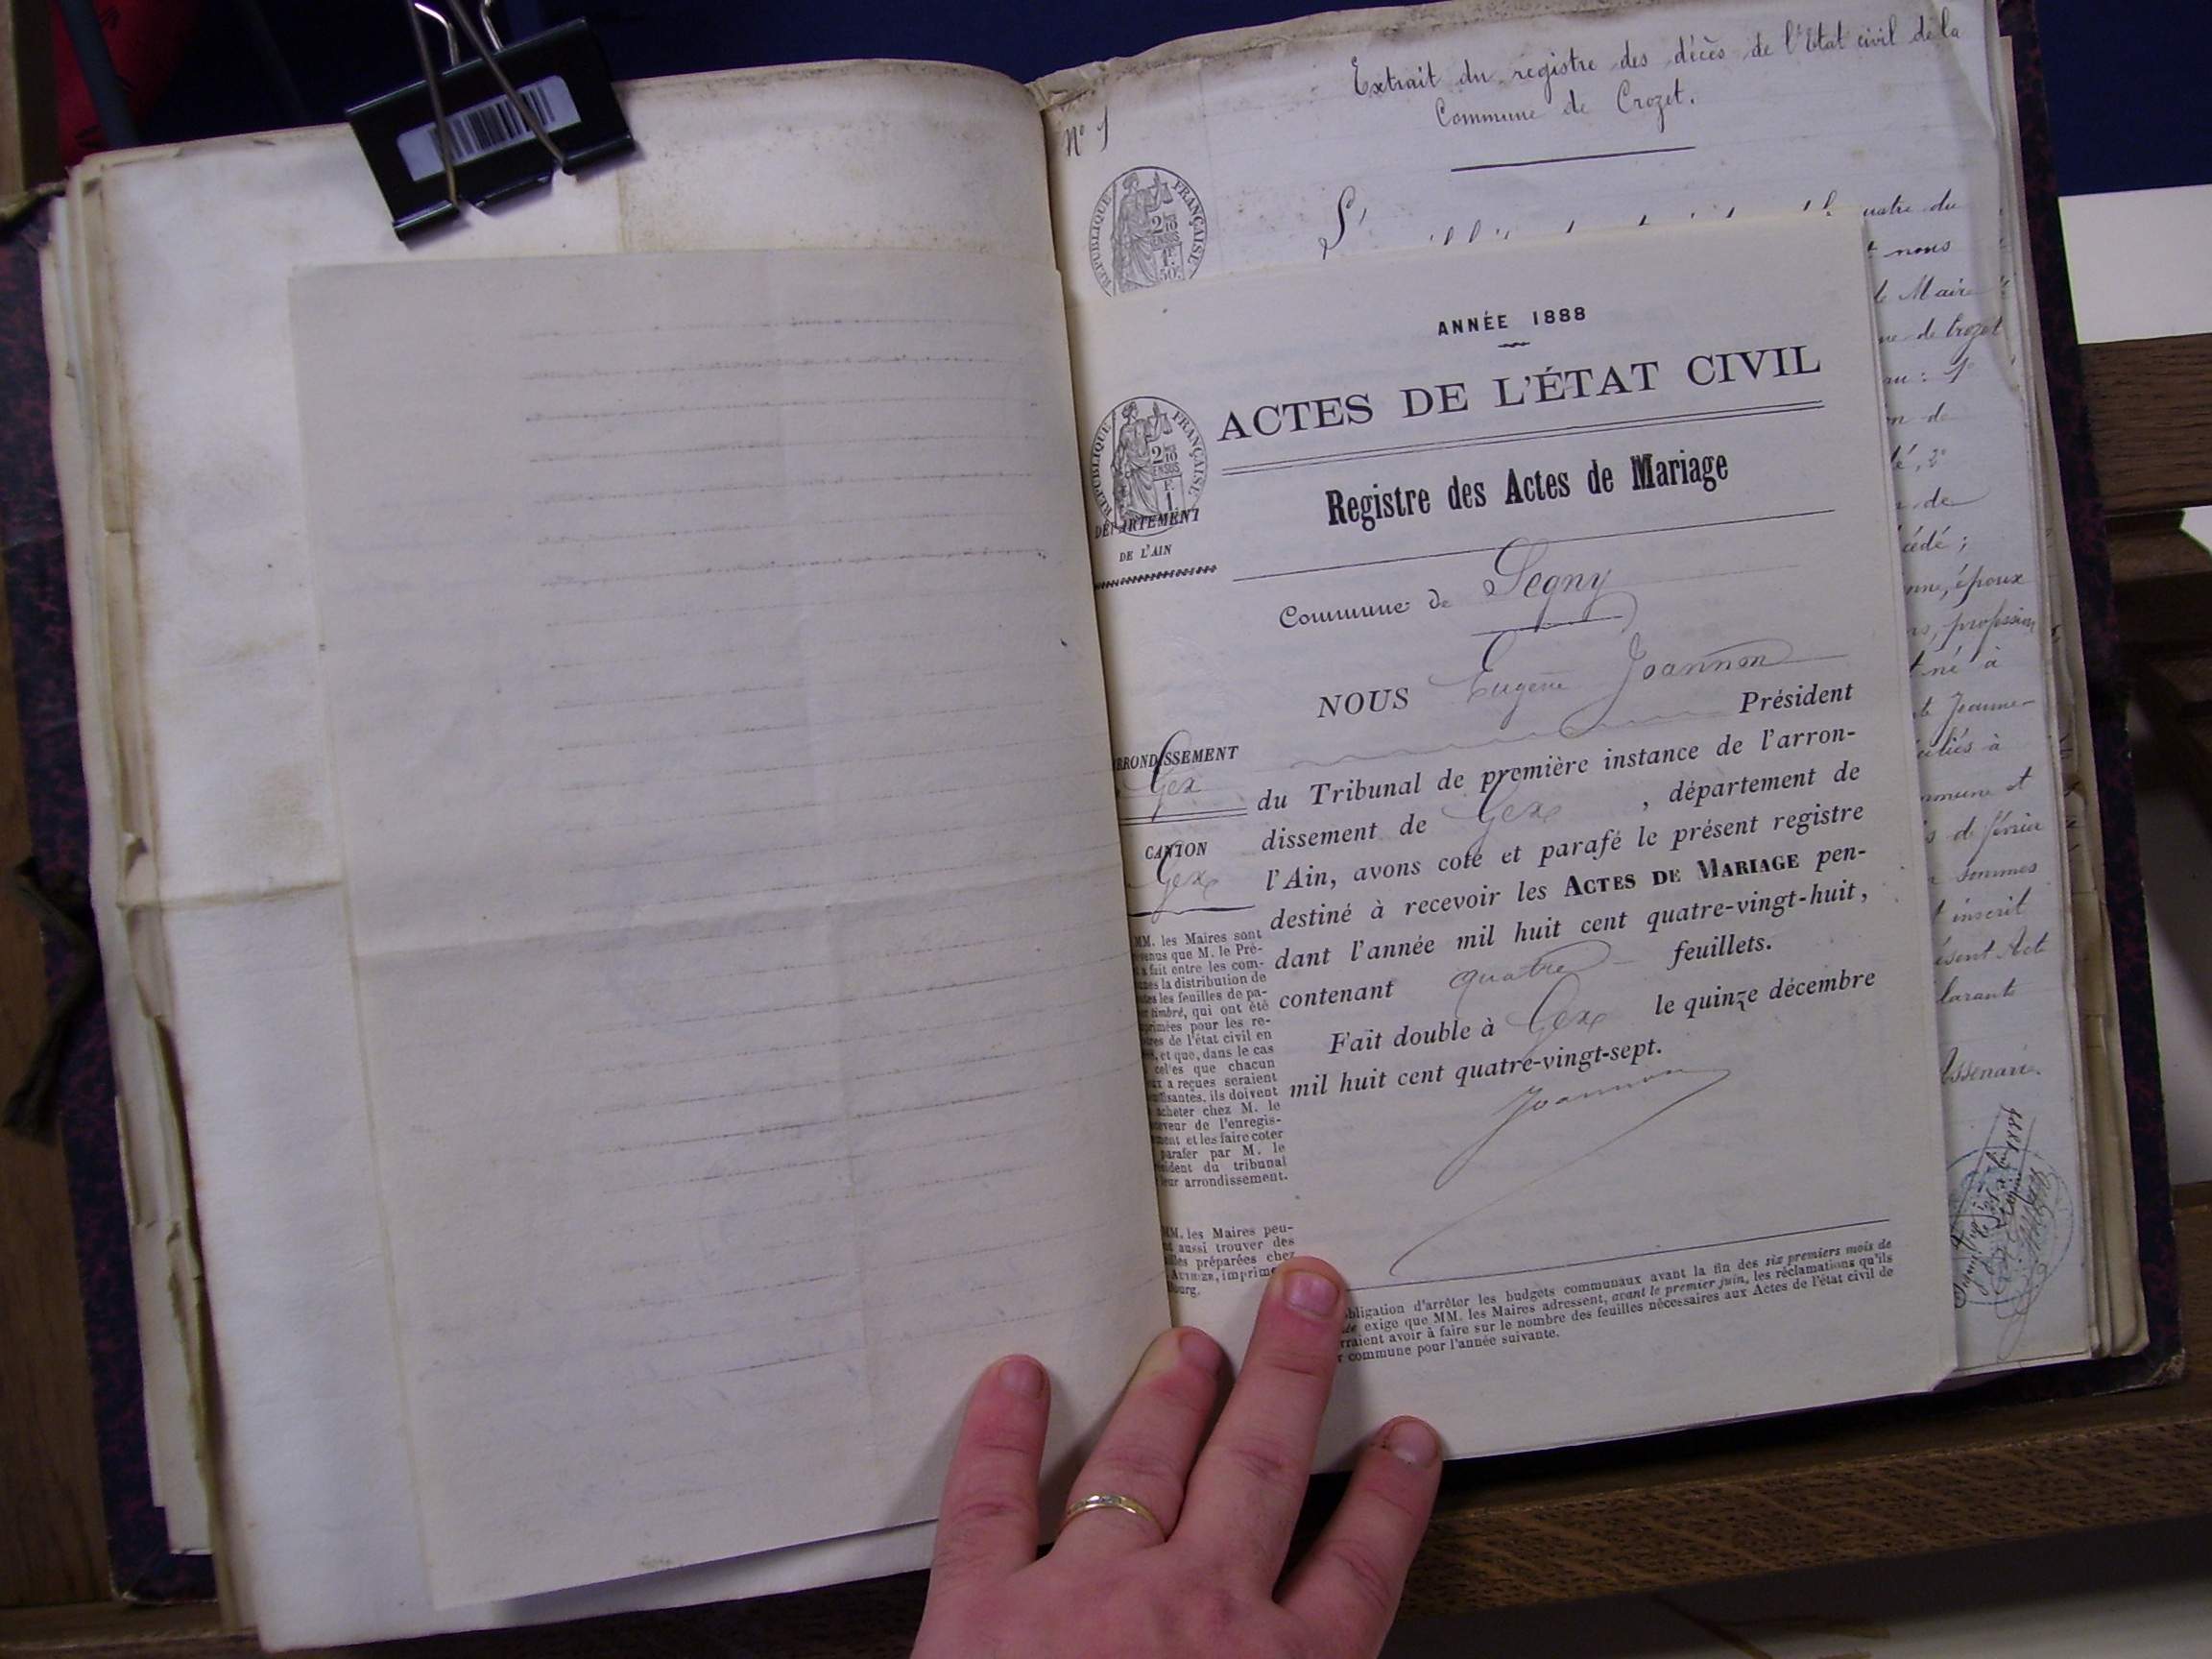 Extrait du registre des décès de l'Etat civil de la
Commune de Crozet.
N° 1
RÉPUBLIQUE FRANÇAISE
2/10 EN SUS
1 F. 50c
uatre du
t nous
le Maire
ne de Crozet
au : 1°
on de
é, 2°
n de
cédé ;
nne, époux
rs, profession
t né à
te Jeanne-
iliés à
mmune et
s de février
n sommes
t inscrit
ésent Acte
larants
ANNÉE 1888
ACTES DE L'ÉTAT CIVIL
RÉPUBLIQUE FRANÇAISE
2/10 EN SUS
F. 1
DÉPARTEMENT
DE L'AIN
Registre des Actes de Mariage
Commune de Segny
NOUS Eugène Joannon
Président
du Tribunal de première instance de l'arron-
dissement de Gex , département de
l'Ain, avons coté et parafé le présent registre
destiné à recevoir les ACTES DE MARIAGE pen-
dant l'année mil huit cent quatre-vingt-huit,
contenant quatre feuillets.
Fait double à Gex le quinze décembre
mil huit cent quatre-vingt-sept.
Joannon
RRONDISSEMENT
Gex
CANTON
Gex
MM. les Maires sont
venus que M. le Pré-
t a fait entre les com-
nes la distribution de
tes les feuilles de pa-
r timbré, qui ont été
primées pour les re-
tres de l'état civil en
et que, dans le cas
celles que chacun
ux a reçues seraient
uffisantes, ils doivent
acheter chez M. le
eveur de l'enregis-
ment et les faire coter
parafer par M. le
sident du tribunal
leur arrondissement.
MM. les Maires peu-
t aussi trouver des
illes préparées chez
imprime
ourg.
obligation d'arrêter les budgets communaux avant la fin des six premiers mois de
exige que MM. les Maires adressent, avant le premier juin, les réclamations qu'ils
rraient avoir à faire sur le nombre des feuilles nécessaires aux Actes de l'état civil de
r commune pour l'année suivante.